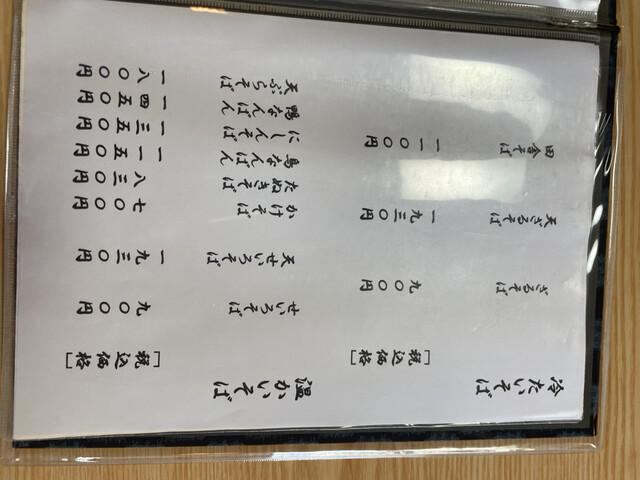 冷たいそば
[税込価格]
ざるそば 九〇〇円
天ざるそば 一九三〇円
田舎そば 一一〇〇円
温かいそば
[税込価格]
せいろそば 九〇〇円
天せいろそば 一九三〇円
かけそば 七〇〇円
たぬきそば 八三〇円
鳥なんばん 一一五〇円
にしんそば 一三五〇円
鴨なんばん 一四五〇円
天ぷらそば 一八〇〇円